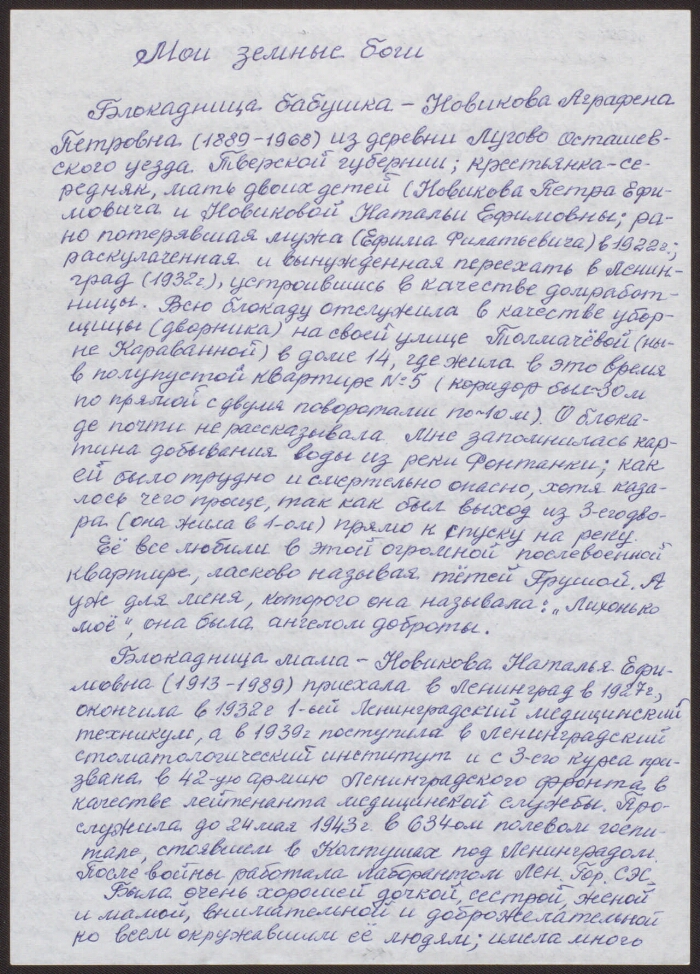 Мои земные боги
Блокадница бабушка – Новикова Аграфена
Петровна (1889-1968) из деревни Лугово Осташев-
ского уезда Тверской губернии; крестьянка-се-
редняк, мать двоих детей (Новикова Петра Ефи-
мовича и Новиковой Натальи Ефимовны; ра-
но потерявшая мужа (Ефима Филатьевича) в 1922г.;
раскулаченная и вынужденная переехать в Ленин-
град (1932г), устроившись в качестве домработ-
ницы. Всю блокаду отслужила в качестве убор-
щицы (дворника) на своей улице Толмачёвой (ны-
не Караванной) в доме 14, где жила в это время
в полупустой квартире №5 (коридор был ~30м
по прямой с двумя поворотами по ~10м). О блока-
де почти не рассказывала. Мне запомнилась кар-
тина добывания воды из реки Фонтанки; как
ей было трудно и смертельно опасно, хотя каза-
лось чего проще, так как был выход из 3-егодво-
ра (она жила в 1-ом) прямо к спуску на реку.
Её все любили в этой огромной послевоенной
квартире, ласково называя тётей Грушой. А
уж для меня, которого она называла: „Лихонько
моё", она была ангелом доброты.
Блокадница мама – Новикова Наталья Ефи-
мовна (1913-1989) приехала в Ленинград в 1927г,
окончила в 1932г 1-ый Ленинградский медицинский
техникум, а в 1939г поступила в Ленинградский
стоматологический институт и с 3-его курса при-
звана в 42-ую армию Ленинградского фронта в
качестве лейтенанта медицинской службы. Про-
служила до 24 мая 1943г. в 634ом полевом госпи-
тале, стоявшем в Колтушах под Ленинградом.
После войны работала лаборантом Лен. Гор. СЭС.
Была очень хорошей дочкой, сестрой, женой
и мамой, внимательной и доброжелательной
ко всем окружавшим её людям; имела много